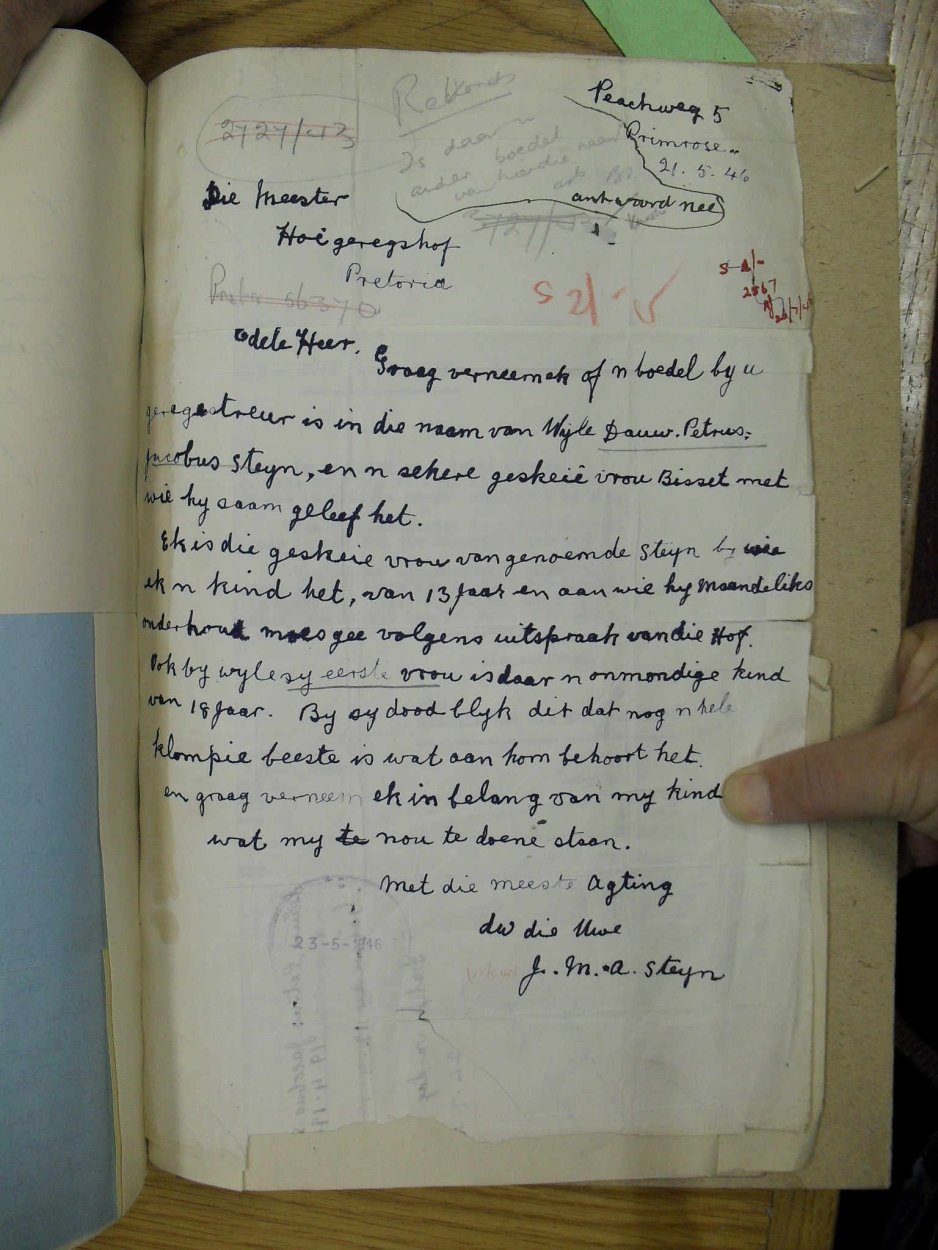 Rekords
2727/43
Peachweg 5
Primrose
21.5.46
Is daar 'n
ander boedel
van hierdie naam
antwoord nee
Die Meester
Hoegeregshof
Pretoria
S 2/-
S 2/-
2567
56370
Edele Heer.
Graag verneem ek of n boedel by u
geregestreur is in die naam van Wyle Dauw. Petrus:
Jacobus Steyn, en n sekere geskeie vrou Bisset met
wie hy saam geleef het.
Ek is die geskeie vrou van genoemde Steyn by wie
ek n kind het, van 13 Jaar en aan wie hy maandeliks
onderhoud moes gee volgens uitspraak van die Hof.
Ook by wyle sy eerste vrou is daar n onmondige kind
van 18 Jaar. By sy dood blyk dit dat nog n hele
klompie beeste is wat aan hom behoort het.
en graag verneem ek in belang van my kind
wat my te nou te doene staan.
Met die meeste Agting
dw die Uwe
J. M. A. Steyn
23-5-1946